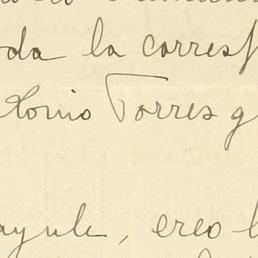 oda la corresp
tonio Torres g
ayule, creo l